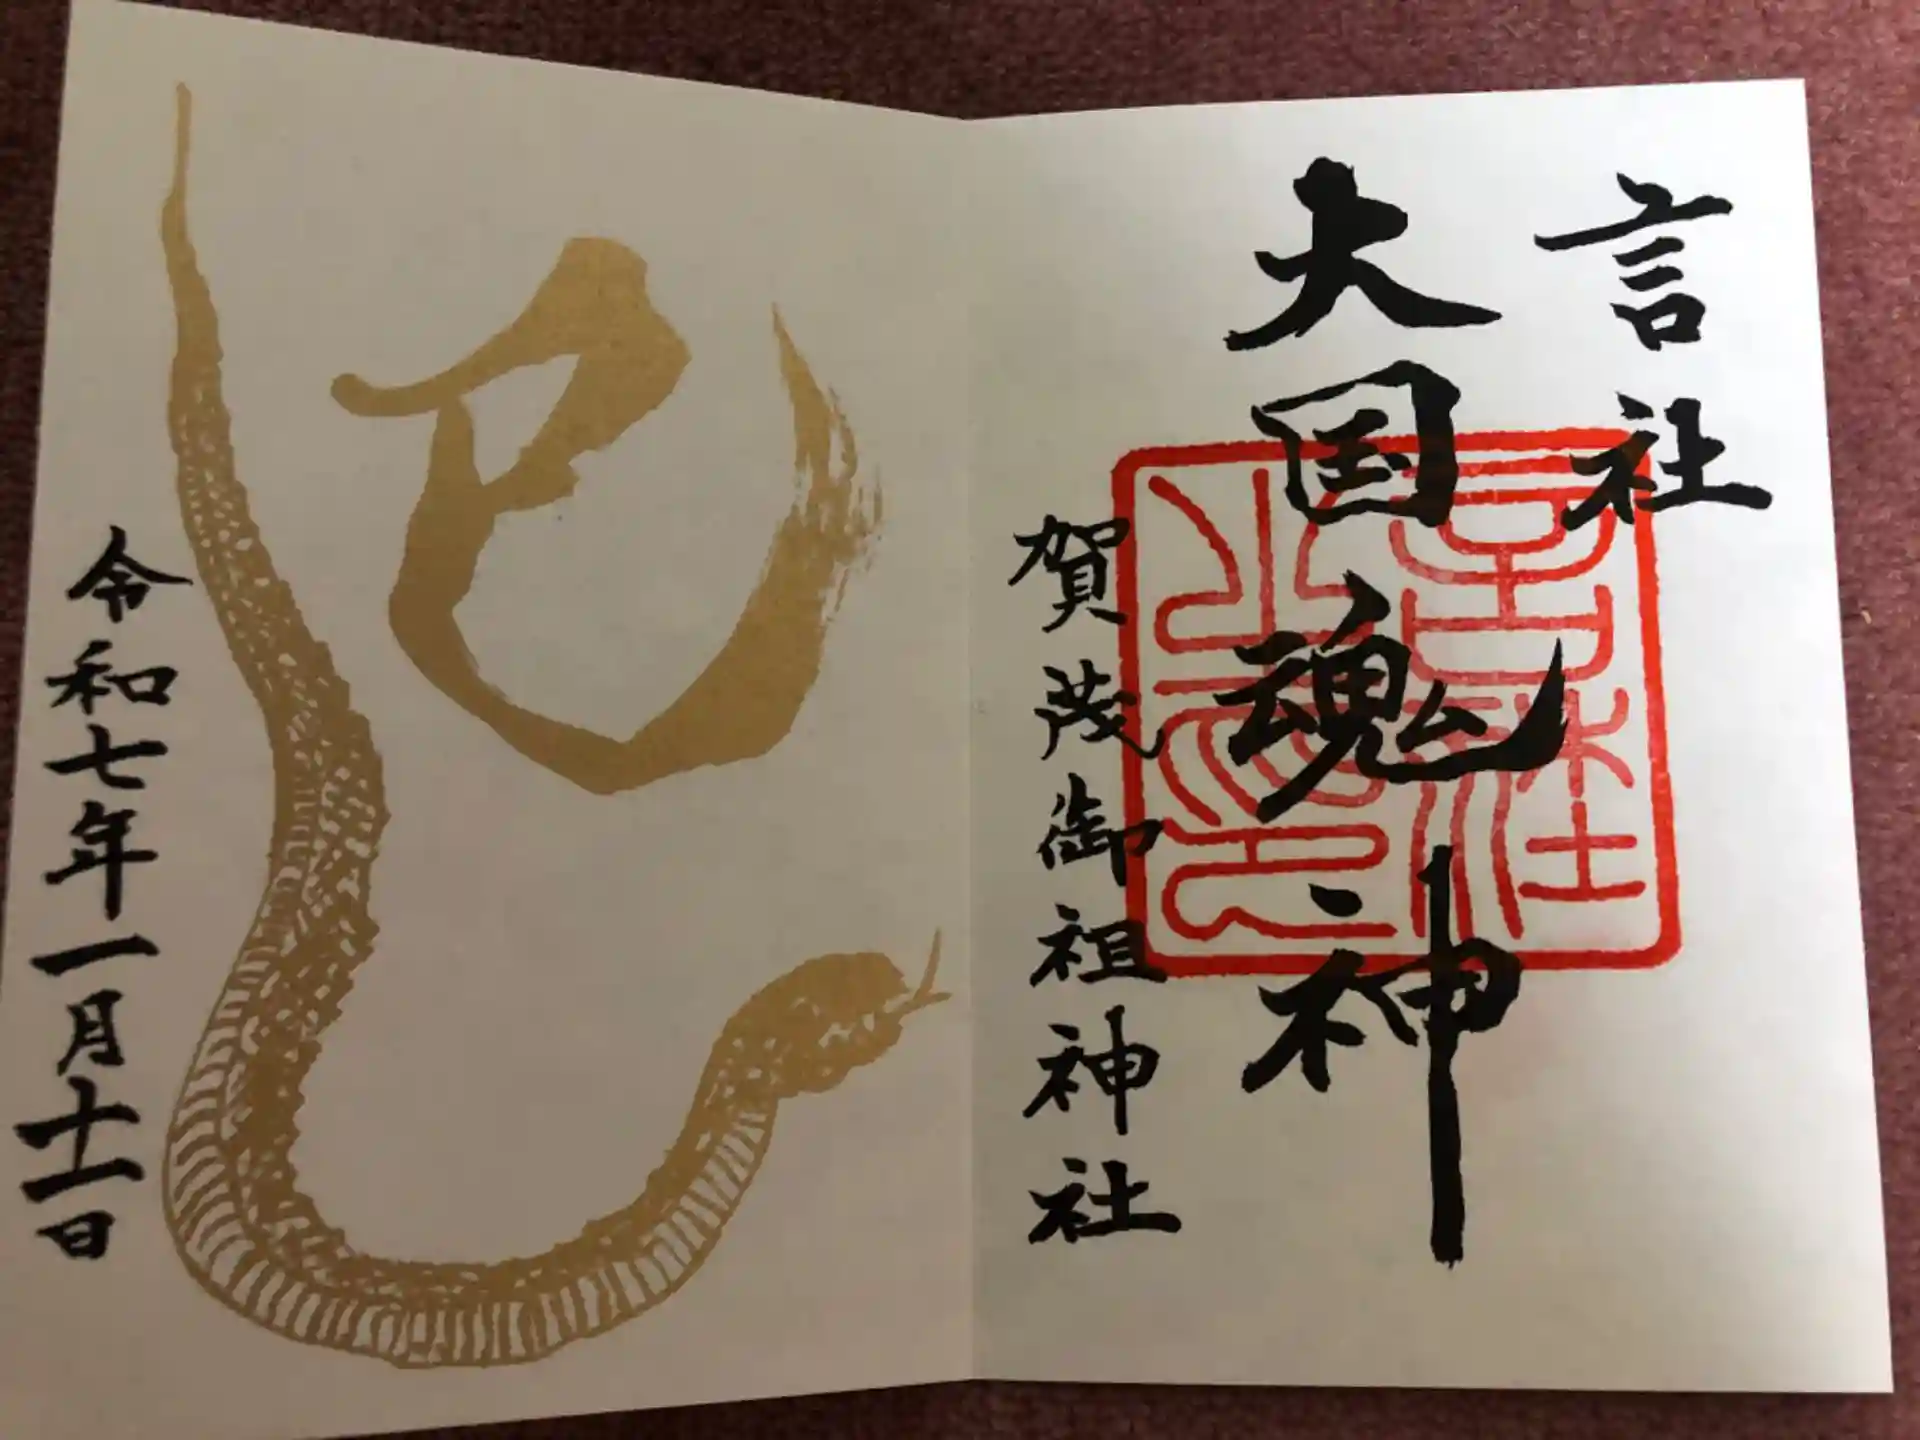 言社
大国魂神
賀茂御祖神社
巳
令和七年一月十一日